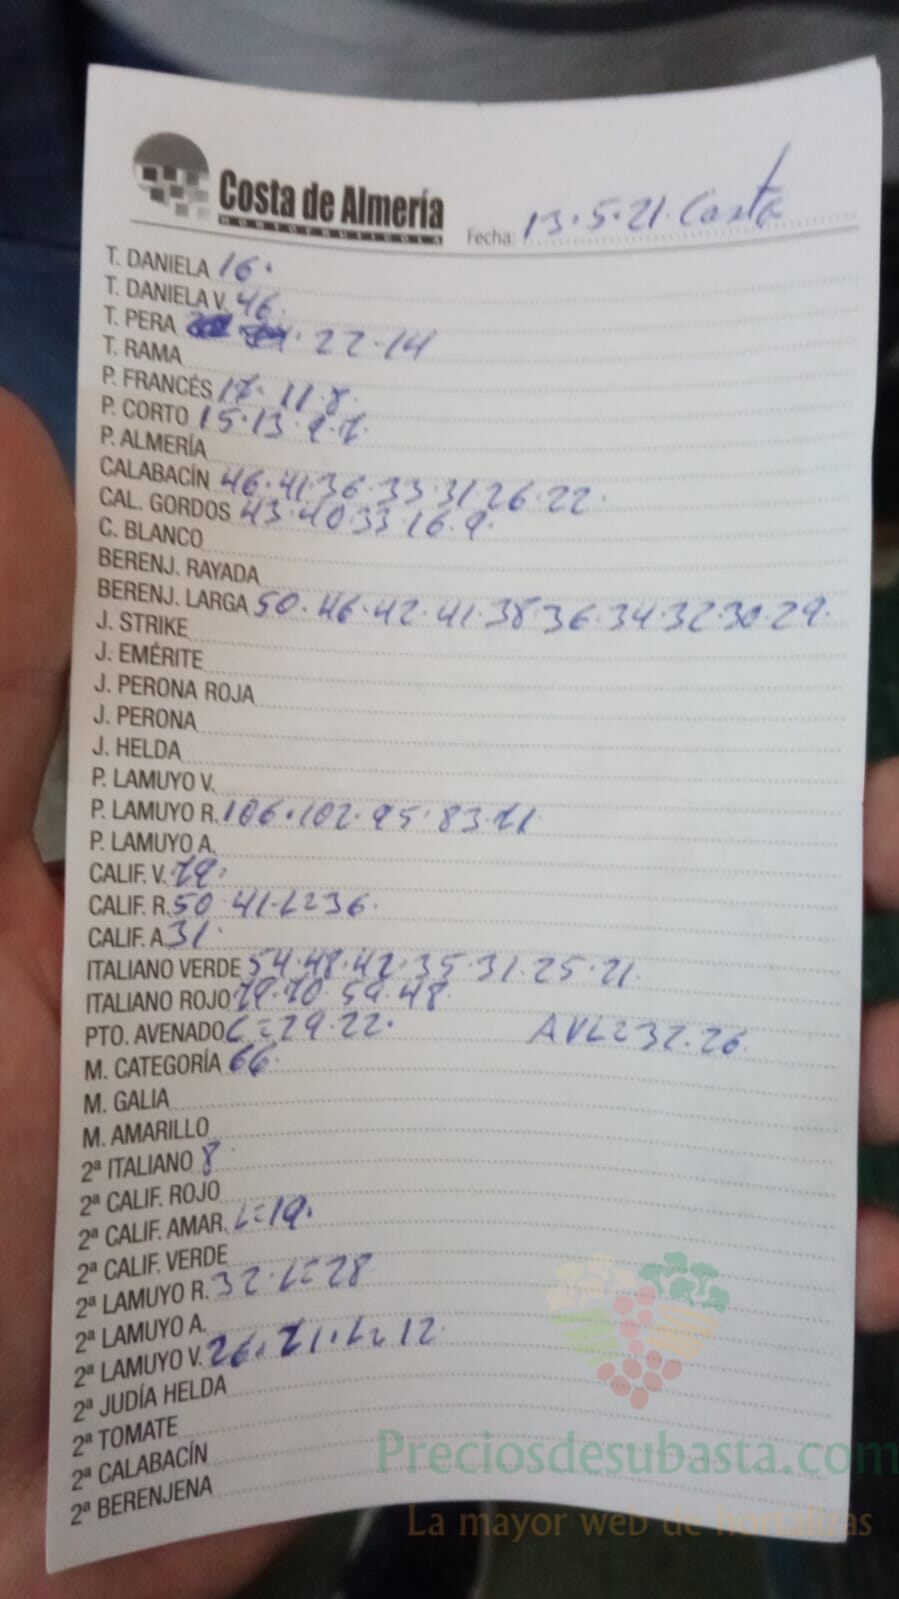 Costa de Almería
HORTOFRUTÍCOLA
Fecha: 13·5·21· Costa
T. DANIELA 16·
T. DANIELA V. 46·
T. PERA · 22·14
T. RAMA
P. FRANCÉS 17· 11·8·
P. CORTO 15·13·9·7·
P. ALMERÍA
CALABACÍN 46·41·36·33·31·26·22·
CAL. GORDOS 43·40·33·16·9·
C. BLANCO
BERENJ. RAYADA
BERENJ. LARGA 50·46·42·41·38·36·34·32·30·29·
J. STRIKE
J. EMÉRITE
J. PERONA ROJA
J. PERONA
J. HELDA
P. LAMUYO V.
P. LAMUYO R. 106·102·95·83·71
P. LAMUYO A.
CALIF. V. 79·
CALIF. R. 50·41·L=36·
CALIF. A. 31·
ITALIANO VERDE 54·48·42·35·31·25·21·
ITALIANO ROJO 79·70·59·48·
PTO. AVENADO C=29·22· AVL=32·26·
M. CATEGORÍA 66·
M. GALIA
M. AMARILLO
2ª ITALIANO 8
2ª CALIF. ROJO
2ª CALIF. AMAR. L=19·
2ª CALIF. VERDE
2ª LAMUYO R. 32·L=28
2ª LAMUYO A.
2ª LAMUYO V. 26·21·L=12·
2ª JUDÍA HELDA
2ª TOMATE
2ª CALABACÍN
2ª BERENJENA
Preciosdesubasta.com
La mayor web de hortalizas